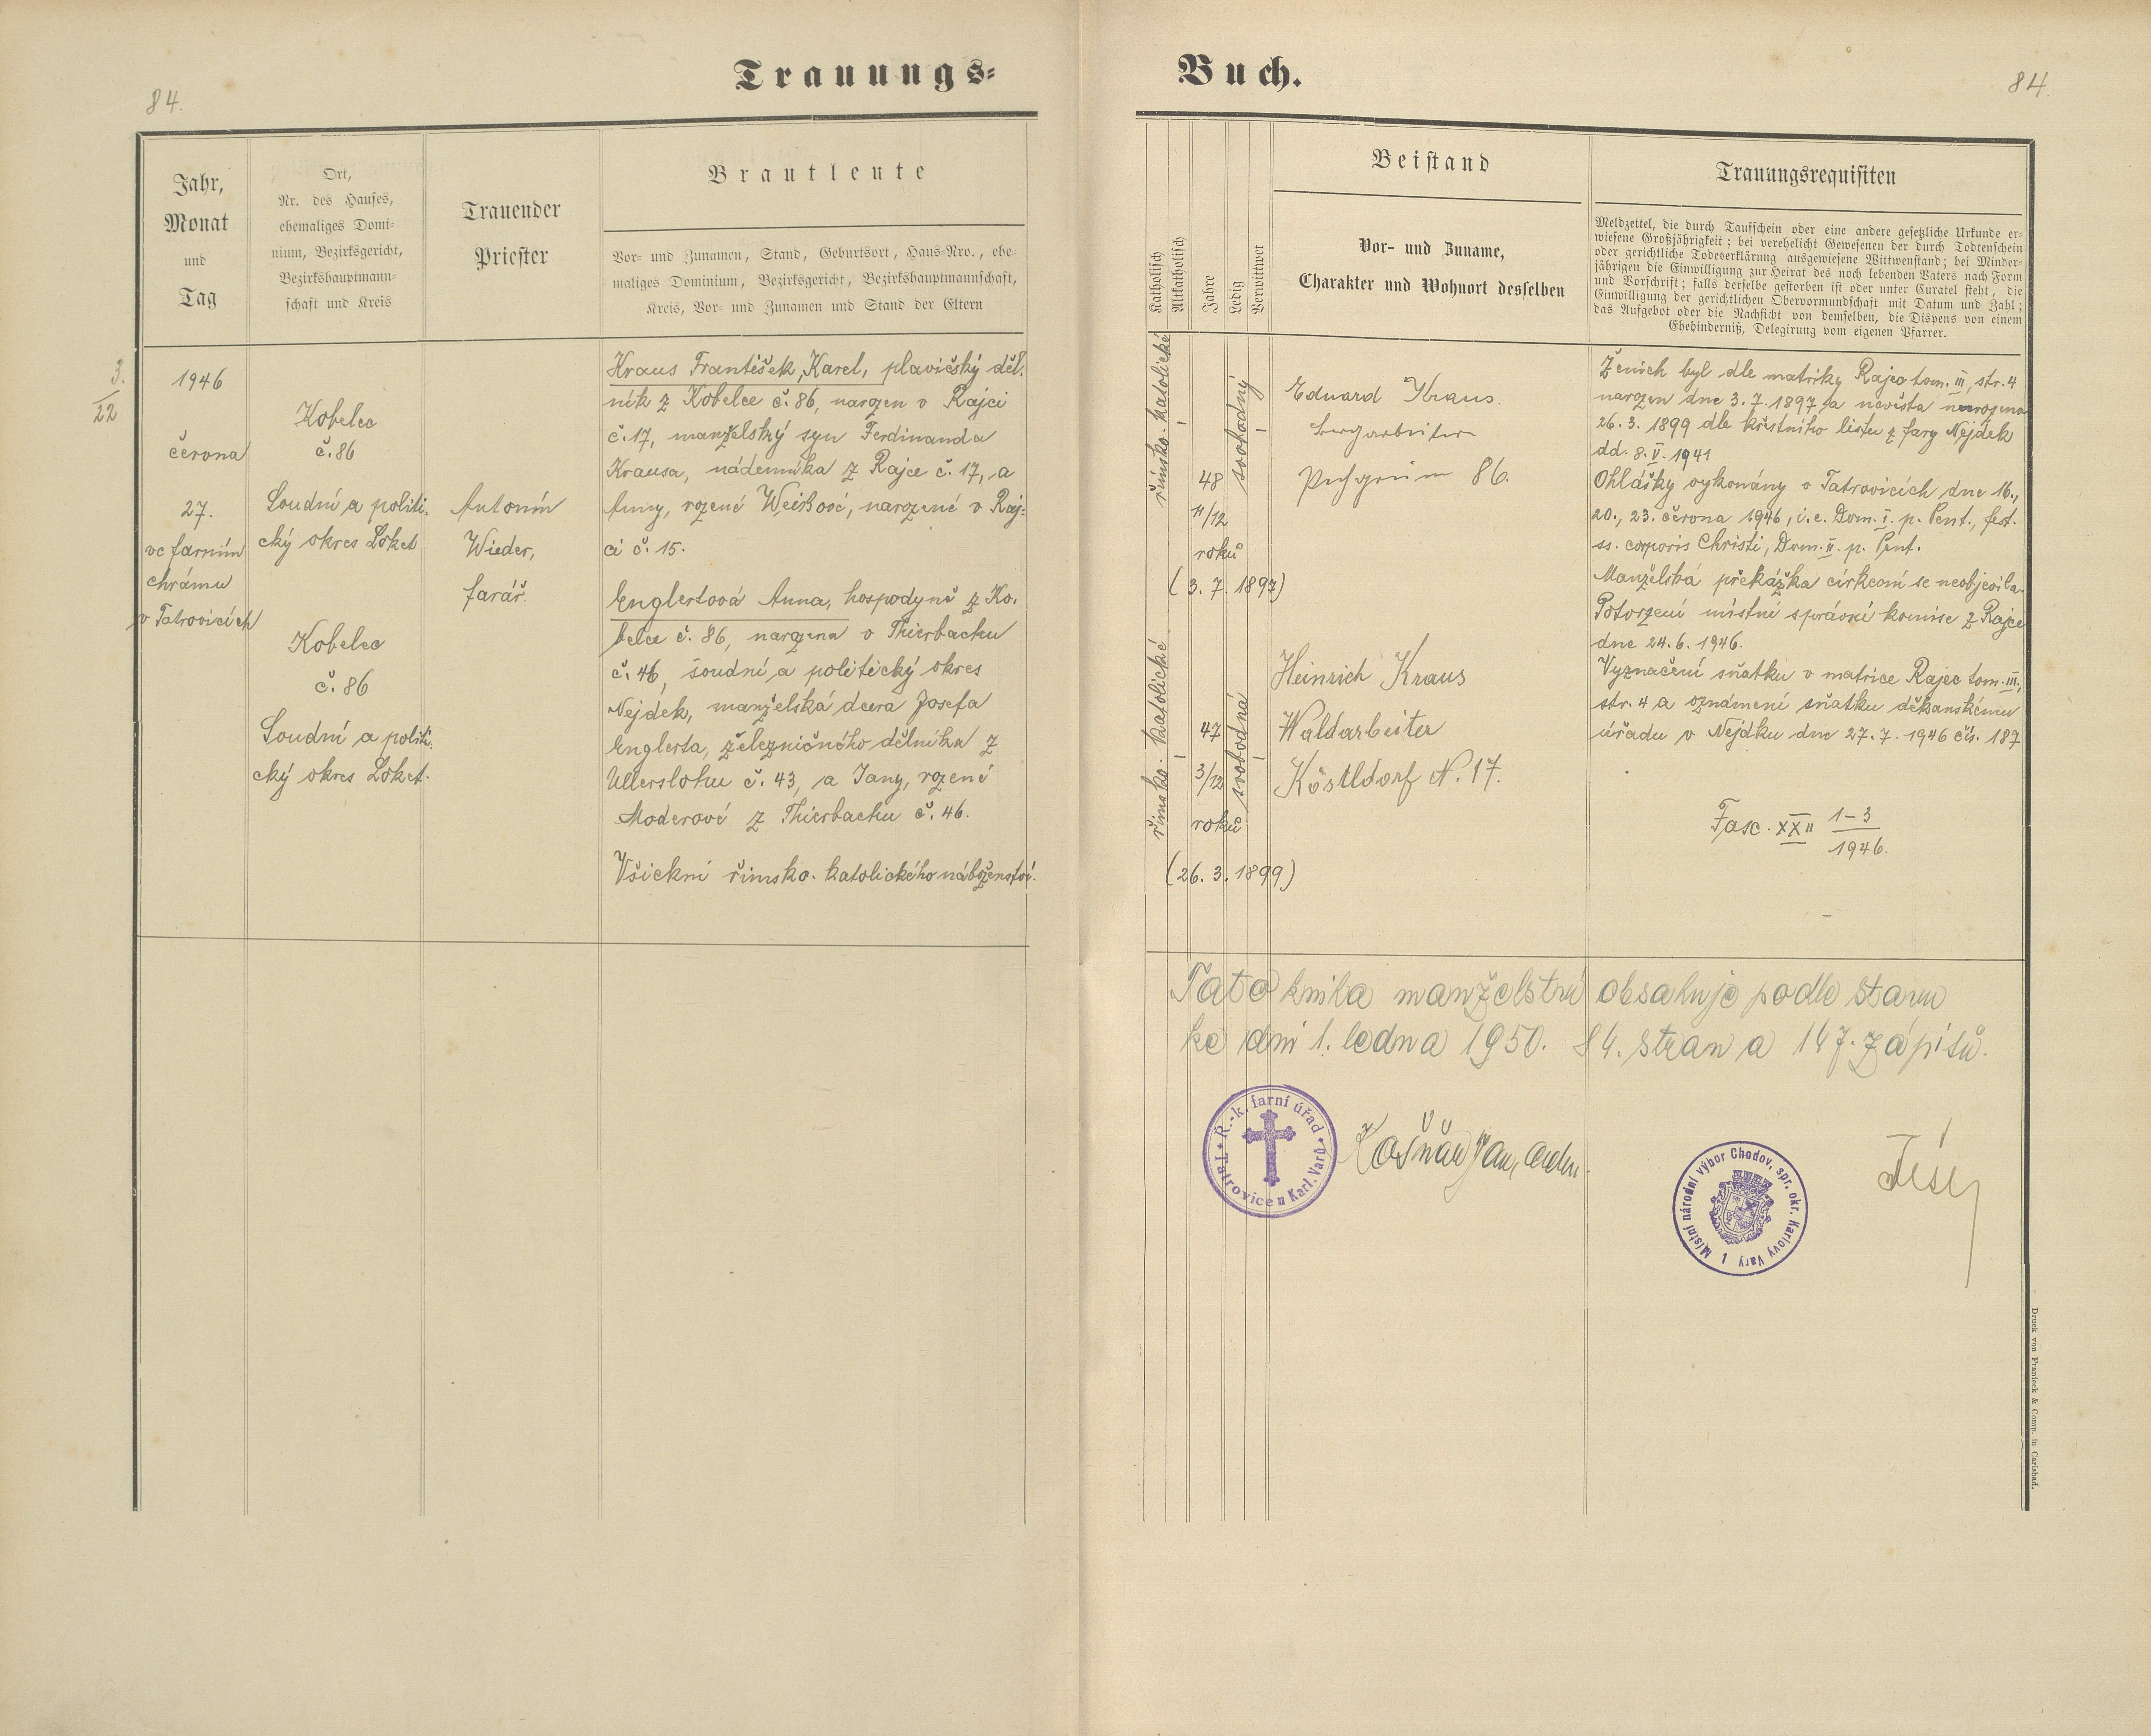 84.
Trauungs-
Jahr,
Monat
und
Tag
Ort,
Nr. des Hauses,
ehemaliges Domi-
nium, Bezirksgericht,
Bezirkshauptmann-
schaft und Kreis
Trauender
Priester
Brautleute
Vor- und Zunamen, Stand, Geburtsort, Haus-Nro., ehe-
maliges Dominium, Bezirksgericht, Bezirkshauptmannschaft,
Kreis, Vor- und Zunamen und Stand der Eltern
3.
22
1946
června
27.
ve farním
chrámu
v Tatrovicích
Kobelec
č. 86
Soudní a politi.
cký okres Loket
Kobelec
č. 86
Soudní a politi.
cký okres Loket.
Antonín
Wieder,
farář.
Kraus František, Karel, plavičský děl.
ník z Kobelce č. 86, narozen v Rajci
č. 17, manželský syn Ferdinanda
Krausa, nádenníka z Rajce č. 17, a
Anny, rozené Weisové, narozené v Raj-
ci č. 15.
Englertová Anna, hospodyně z Ko.
belce č. 86, narozena v Thierbachu
č. 46, soudní a politický okres
Nejdek, manželská dcera Josefa
Englerta, železničného dělníka z
Ullerslohu č. 43, a Jany, rozené
Moderové z Thierbachu č. 46.
Všickni římsko. katolického náboženství.
Buch.
84.
Katholisch
Altkatholisch
Jahre
Ledig
Verwittwet
Beistand
Vor- und Zuname,
Charakter und Wohnort desselben
Trauungsrequisiten
Meldzettel, die durch Taufschein oder eine andere gesetzliche Urkunde er-
wiesene Großjährigkeit; bei verehelicht Gewesenen der durch Todtenschein
oder gerichtliche Todeserklärung ausgewiesene Wittwenstand; bei Minder-
jährigen die Einwilligung zur Heirat des noch lebenden Vaters nach Form
und Vorschrift; falls derselbe gestorben ist oder unter Curatel steht, die
Einwilligung der gerichtlichen Obervormundschaft mit Datum und Zahl;
das Aufgebot oder die Nachsicht von demselben, die Dispens von einem
Ehehinderniß, Delegirung vom eigenen Pfarrer.
římsko. katolické
48
11/12
roků
(3. 7. 1897)
svobodný
římsko. katolické
47
3/12
roků
(26. 3. 1899)
svobodná
Eduard Kraus.
Bergarbeiter
Pechgrün 86.
Heinrich Kraus
Waldarbeiter
Köstldorf N. 17.
Ženich byl dle matriky Rajec tom. III, str. 4
narozen dne 3. 7. 1897 a nevěsta narozena
26. 3. 1899 dle křestního listu z fary Nejdek
dd. 8. V. 1941
Ohlášky vykonány v Tatrovicích dne 16.,
20., 23. června 1946, i. e. Dom. I. p. Pent., fest.
ss. corporis Christi, Dom. II. p. Pent.
Manželská překážka církevní se neobjevila.
Potvrzení místní správní komise z Rajce
dne 24. 6. 1946.
Vyznačení sňatku v matrice Rajec tom. III,
str. 4 a oznámení sňatku děkanskému
úřadu v Nejdku dne 27. 7. 1946 čís. 187
Fasc. XXII 1-3
1946.
Tato kniha manželství obsahuje podle stavu
ke dni 1. ledna 1950. 84. stran a 147. zápisů.
Ř.-k. farní úřad
Tatrovice u Karl. Varů
Košnář Jan,
Místní národní výbor Chodov, spr. okr. Karlovy Vary 1
Druck von Franieck & Comp. in Carlsbad.